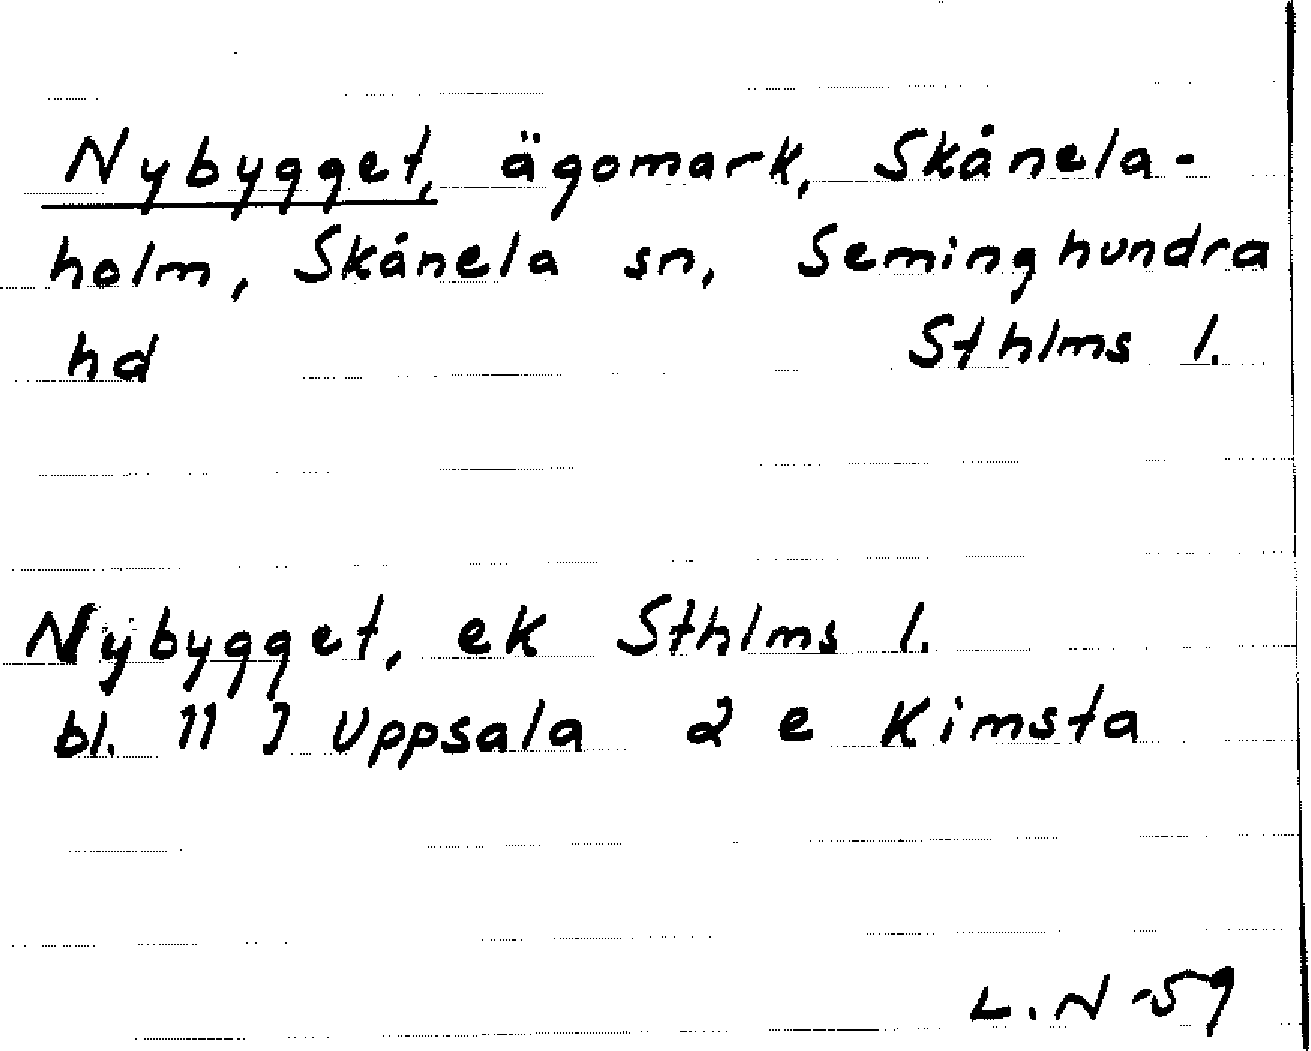 Nybygget, ägomark, Skånela-
holm, Skånela sn, Seminghundra
hd Sthlms l.
Nybygget, ek Sthlms l.
bl. 11 I Uppsala 2 e Kimsta
L. N -59